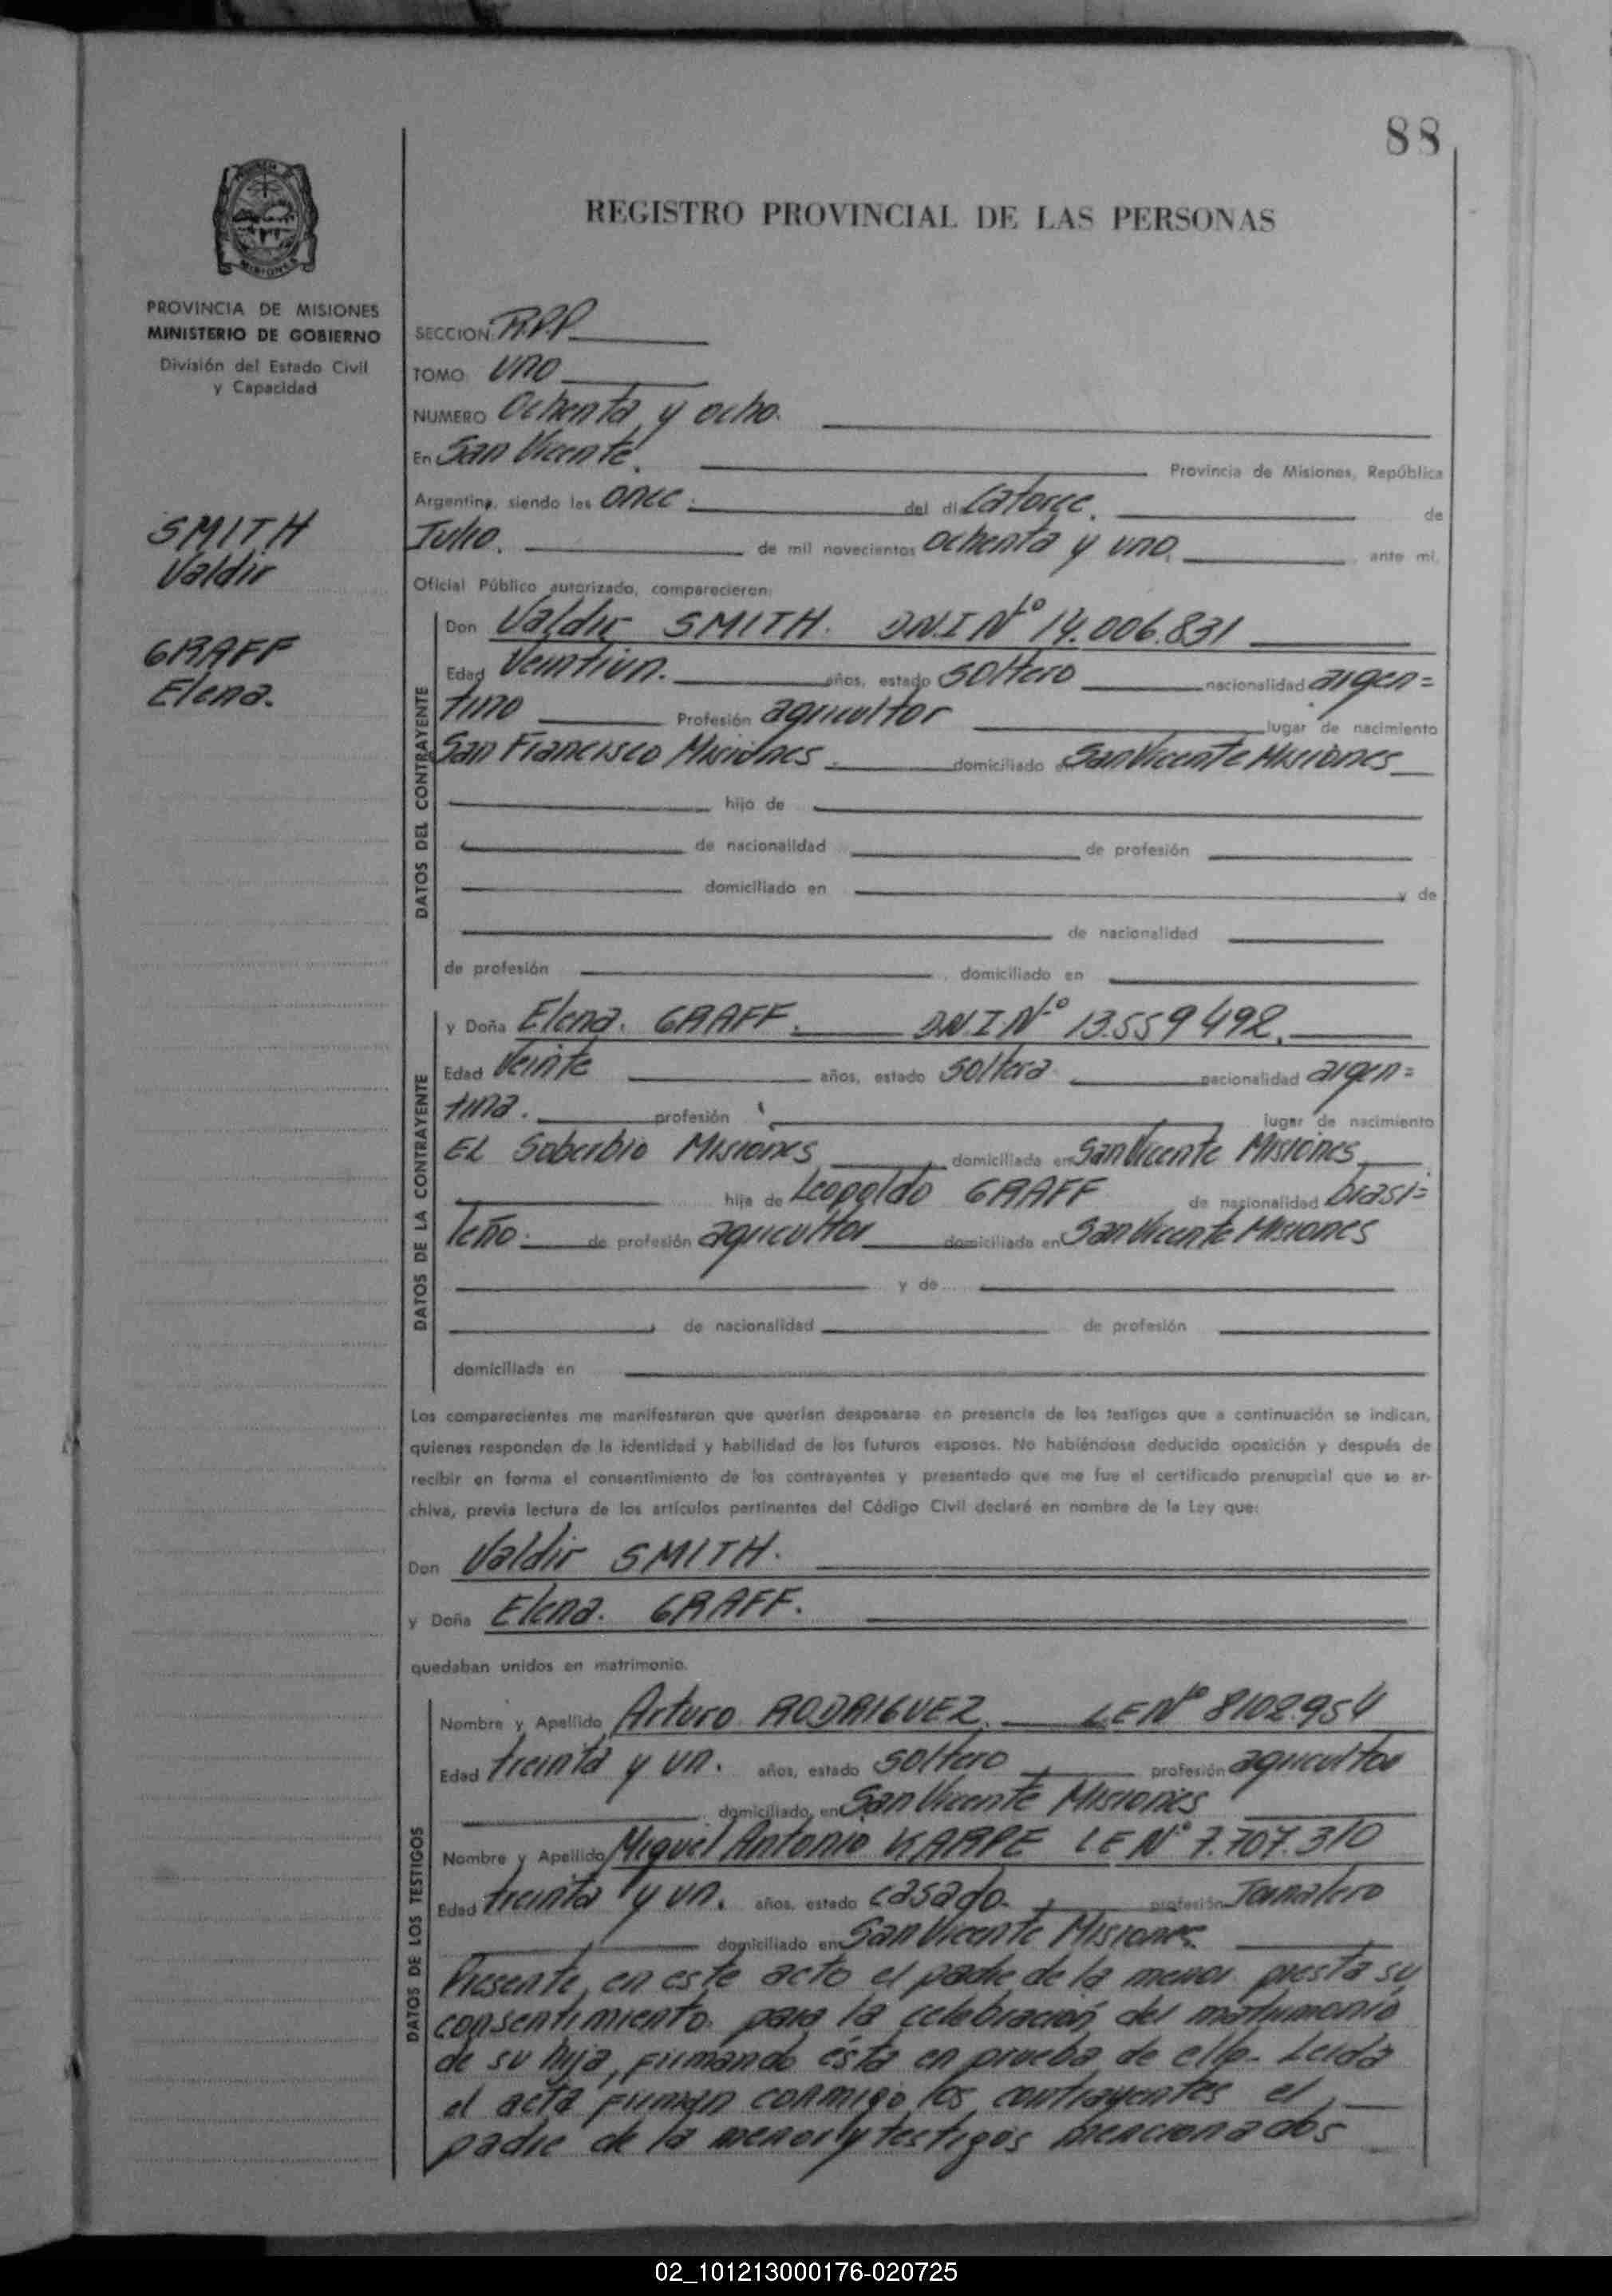 88
REGISTRO PROVINCIAL DE LAS PERSONAS
MISIONES
PROVINCIA DE MISIONES
MINISTERIO DE GOBIERNO
División del Estado Civil
y Capacidad
SMITH
Valdir
GRAFF
Elena.
SECCION R.P.P.
TOMO uno
NUMERO Ochenta y ocho.
En San Vicente. Provincia de Misiones, República
Argentina, siendo las once. del día Catorce. de
Julio. de mil novecientos ochenta y uno, ante mí,
Oficial Público autorizado, comparecieron:
DATOS DEL CONTRAYENTE
Don Valdir SMITH. D.N.I Nº 14.006.831
Edad Veintiun. años, estado soltero nacionalidad argen=
tino Profesión agricultor lugar de nacimiento
San Francisco Misiones. domiciliado en San Vicente Misiones
hijo de
de nacionalidad de profesión
domiciliado en y de
de nacionalidad
de profesión domiciliado en
DATOS DE LA CONTRAYENTE
y Doña Elena. GRAFF. D.N.I. Nº 13.559492.
Edad Veinte años, estado soltera nacionalidad argen=
tina. profesión lugar de nacimiento
EL Soberbio Misiones domiciliada en San Vicente Misiones
hija de Leopoldo GRAFF de nacionalidad brasi=
leño. de profesión agricultor domiciliado en San Vicente Misiones
y de
de nacionalidad de profesión
domiciliada en
Los comparecientes me manifestaron que querían desposarse en presencia de los testigos que a continuación se indican,
quienes responden de la identidad y habilidad de los futuros esposos. No habiéndose deducido oposición y después de
recibir en forma el consentimiento de los contrayentes y presentado que me fue el certificado prenupcial que se ar-
chiva, previa lectura de los artículos pertinentes del Código Civil declaré en nombre de la Ley que:
Don Valdir SMITH.
y Doña Elena. GRAFF.
quedaban unidos en matrimonio.
DATOS DE LOS TESTIGOS
Nombre y Apellido Arturo RODRIGUEZ. LE Nº 8102.954
Edad treinta y un. años, estado soltero profesión agricultor
domiciliado en San Vicente Misiones
Nombre y Apellido Miguel Antonio KARPE LE Nº 7.707.310
Edad treinta y un. años, estado casado. profesión
domiciliado en San Vicente Misiones
Presente en este acto el padre de la menor presta su
consentimiento para la celebración del matrimonio
de su hija, firmando ésta en prueba de ello. Leída
el acta firman conmigo los contrayentes el
padre de la menor y testigos mencionados
02_101213000176-020725